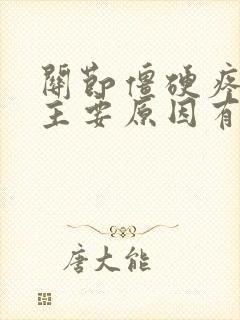 關節僵硬疼
主要原因有
唐大能